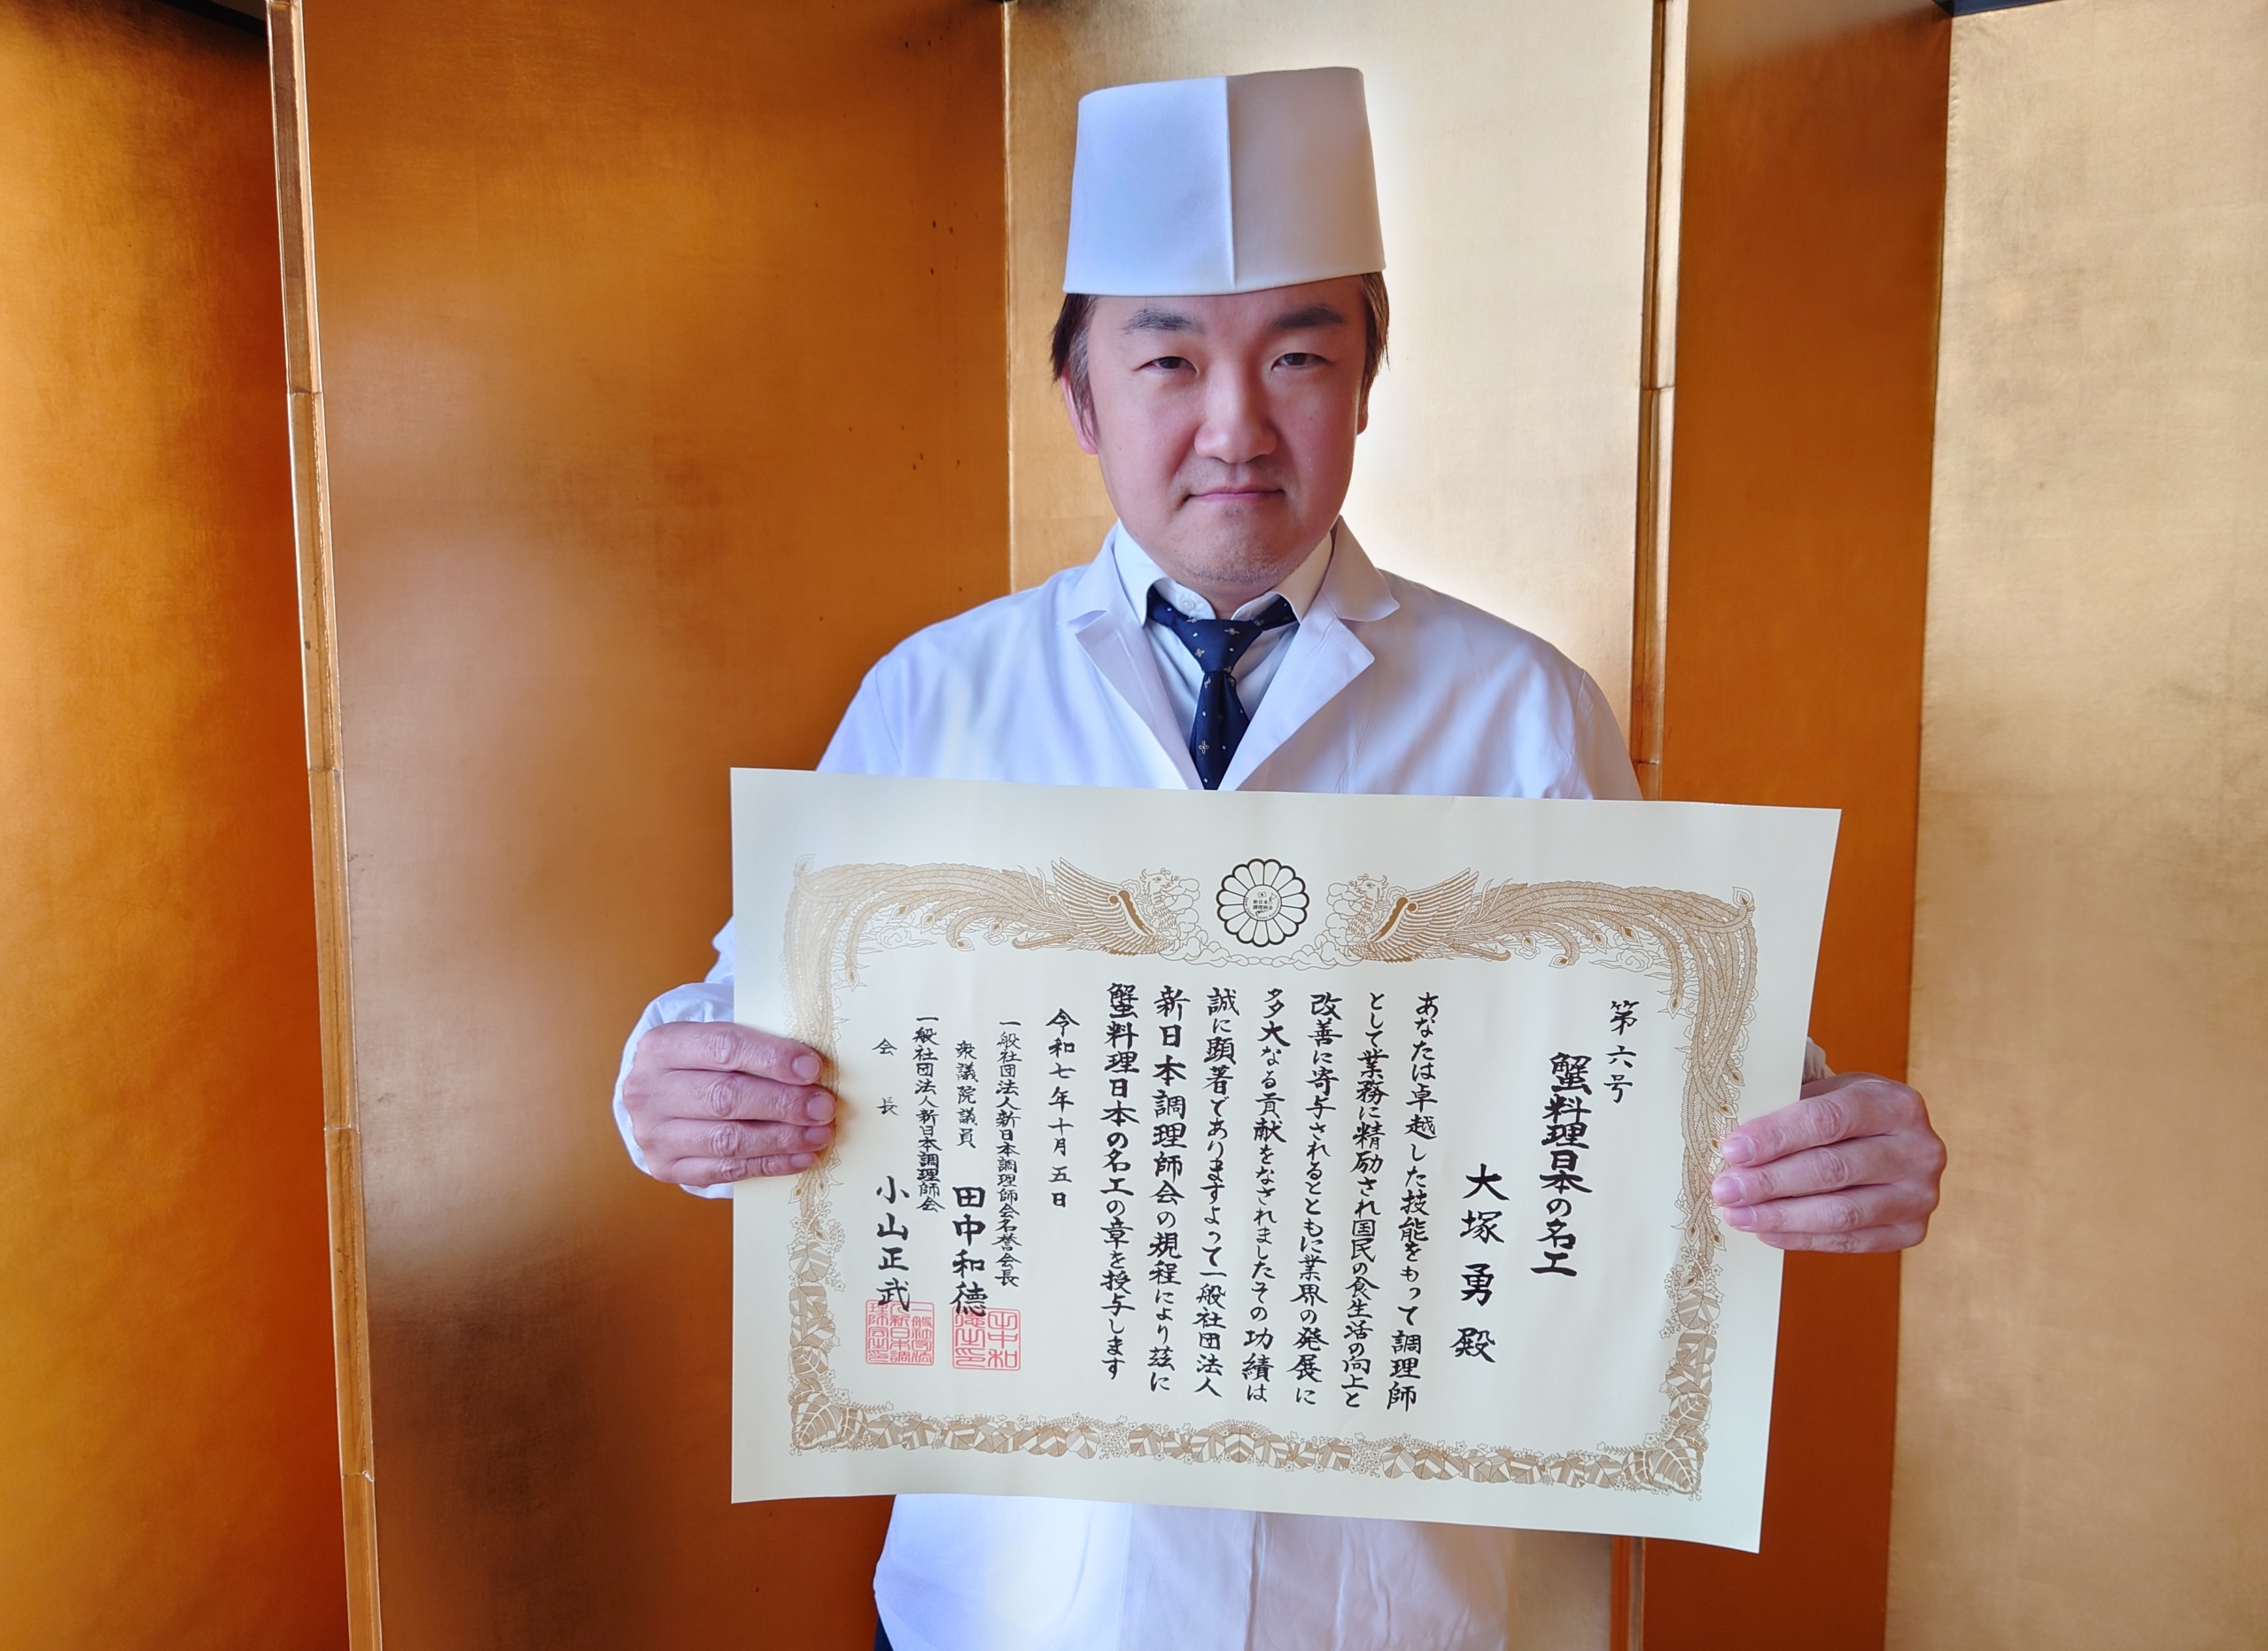 第六号
蟹料理日本の名工
大塚勇殿
あなたは卓越した技能をもって調理師
として業務に精励され国民の食生活の向上と
改善に寄与されるとともに業界の発展に
多大なる貢献をなされましたその功績は
誠に顕著でありますよって一般社団法人
新日本調理師会の規程により茲に
蟹料理日本の名工の章を授与します
令和七年十月五日
一般社団法人新日本調理師会名誉会長
衆議院議員 田中和德
一般社団法人新日本調理師会
会長 小山正武